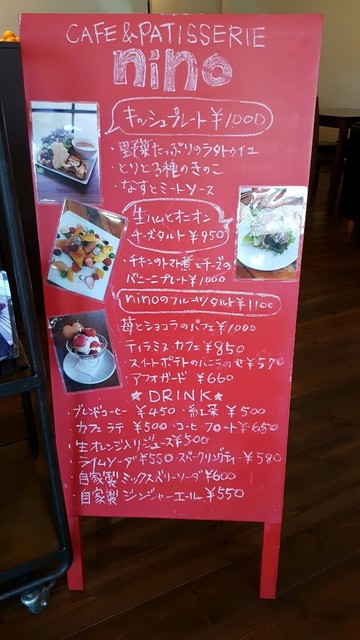 CAFE & PATISSERIE
nino
キッシュプレート ¥1000
・野菜たっぷりのラタトゥイユ
・とりと3種のきのこ
・なすとミートソース
生ハムとオニオン
チーズタルト ¥950
・チキンのトマト煮とチーズの
パニーニプレート ¥1000
ninoのフルーツタルト ¥1100
苺とショコラのパフェ ¥1000
・ティラミスカフェ ¥850
・スイートポテトのバニラのせ ¥570
・アフォガード ¥660
☆DRINK☆
・ブレンドコーヒー ¥450 ・紅茶 ¥500
・カフェラテ ¥500 ・コーヒーフロート ¥650
・生オレンジ入りジュース ¥500
・ライムソーダ ¥550 スパークリングティー ¥580
・自家製ミックスベリーソーダ ¥600
・自家製ジンジャーエール ¥550